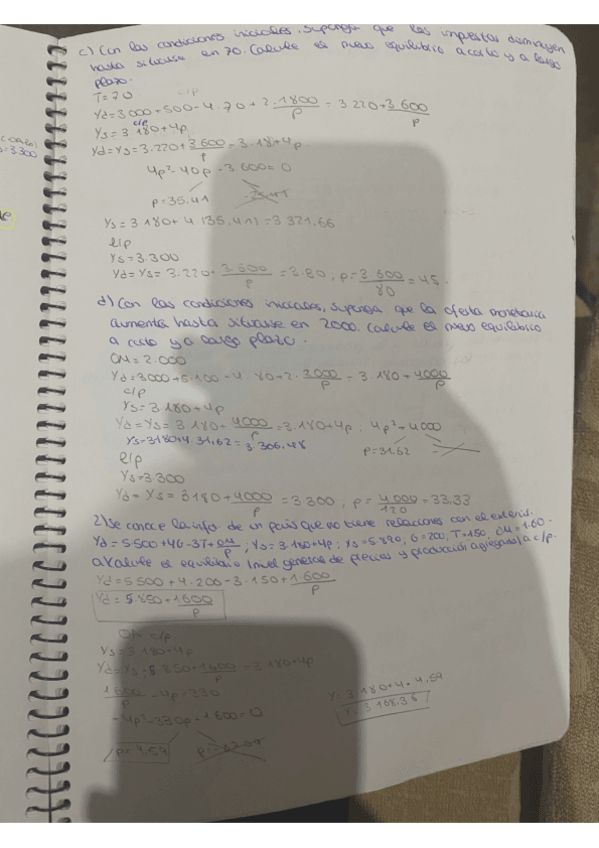 c) Con las condiciones iniciales, suponga que los impuestos disminuyen
hasta situarse en 70. Calcule el nuevo equilibrio a corto y a largo
plazo.
T=70 c/p
Yd=3000+500-4·70+2·1800/P = 3.220+3.600/P
c/p
Ys=3180+4P
Yd=Ys=3.220+3.600/P=3.18+4P
4P²-40P-3.600=0
P=35.41
Ys=3180+4(35,41)=3321.66
l/p
Ys=3.300
Yd=Ys=3.220+3.600/P=3.80, P=3600/80=45.
d) Con las condiciones iniciales, suponga que la oferta monetaria
aumenta hasta situarse en 2000. Calcule el nuevo equilibrio
a corto y a largo plazo.
OM=2.000
Yd=3000+5·100-4·80+2·2000/P=3.180+4000/P
c/p
Ys=3180+4P
Yd=Ys=3180+4000/P=3.180+4P, 4P²=4000
Ys=3180+4·31,62=3.306,48 P=31.62
l/p
Ys=3300
Yd=Ys=3180+4000/P=3300, P=4000/120=33,33
2) Se conoce la info. de un país que no tiene relaciones con el exterior.
Yd=5500+4G-3T+OM/P; Ys=3.180+4P; Ys=5.890, G=200, T=150, OM=1.60.
a) Calcule el equilibrio (nivel general de precios y producción agregada) a c/p.
Yd=5500+4·200-3·150+1.600/P
Yd=5.850+1600/P
c/p
Ys=3180+4P
Yd=Ys=5850+1600/P=3180+4P
1600/P-4P=330
-4P²-330P+1600=0
P=4,59
Y=3180+4·4,59
Y=3198,36